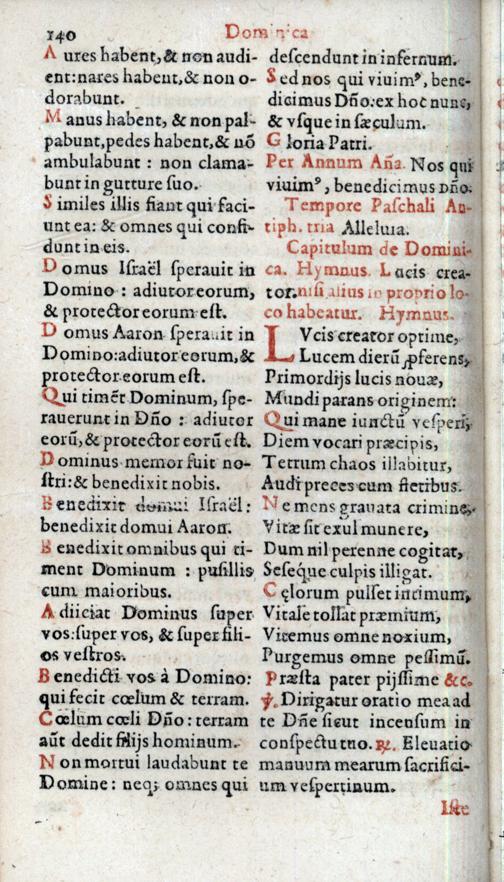 140 Dominica
Aures habent, & non audi-
ent: nares habent, & non o-
dorabunt.
Manus habent, & non pal-
pabunt, pedes habent, & nõ
ambulabunt : non clama-
bunt in gutture ſuo.
Similes illis fiant qui faci-
unt ea: & omnes qui confi-
dunt in eis.
Domus Iſraël ſperauit in
Domino : adiutor eorum,
& protector eorum eſt.
Domus Aaron ſperauit in
Domino: adiutor eorum, &
protector eorum eſt.
Qui timẽt Dominum, ſpe-
rauerunt in Dño : adiutor
eorũ, & protector eorũ eſt.
Dominus memor fuit no-
ſtri: & benedixit nobis.
Benedixit domui Iſraël:
benedixit domui Aaron.
Benedixit omnibus qui ti-
ment Dominum : puſillis
cum maioribus.
Adiiciat Dominus ſuper
vos: ſuper vos, & ſuper fili-
os veſtros.
Benedicti vos à Domino:
qui fecit cœlum & terram.
Cœlum cœli Dño: terram
aũt dedit filijs hominum.
Non mortui laudabunt te
Domine: neq; omnes qui
deſcendunt in infernum.
Sed nos qui viuimꝰ, bene-
dicimus Dño: ex hoc nunc,
& vſque in ſæculum.
Gloria Patri.
Per Annum Aña. Nos qui
viuimꝰ, benedicimus Dño.
Tempore Paſchali An-
tiph. tria Alleluia.
Capitulum de Domini-
ca. Hymnus. Lucis crea-
tor. niſi alius in proprio lo-
co habeatur. Hymnus.
LVcis creator optime,
Lucem dierũ ꝓferens,
Primordijs lucis nouæ,
Mundi parans originem:
Qui mane iunctũ veſperi,
Diem vocari præcipis,
Tetrum chaos illabitur,
Audi preces cum fletibus.
Ne mens grauata crimine,
Vitæ ſit exul munere,
Dum nil perenne cogitat,
Seſeque culpis illigat.
Cęlorum pulſet intimum,
Vitale tollat præmium,
Vitemus omne noxium,
Purgemus omne peſſimũ.
Præſta pater pijſſime &c.
℣. Dirigatur oratio mea ad
te Dñe ſicut incenſum in
conſpectu tuo. ℟. Eleuatio
manuum mearum ſacrifici-
um veſpertinum.
Iſte